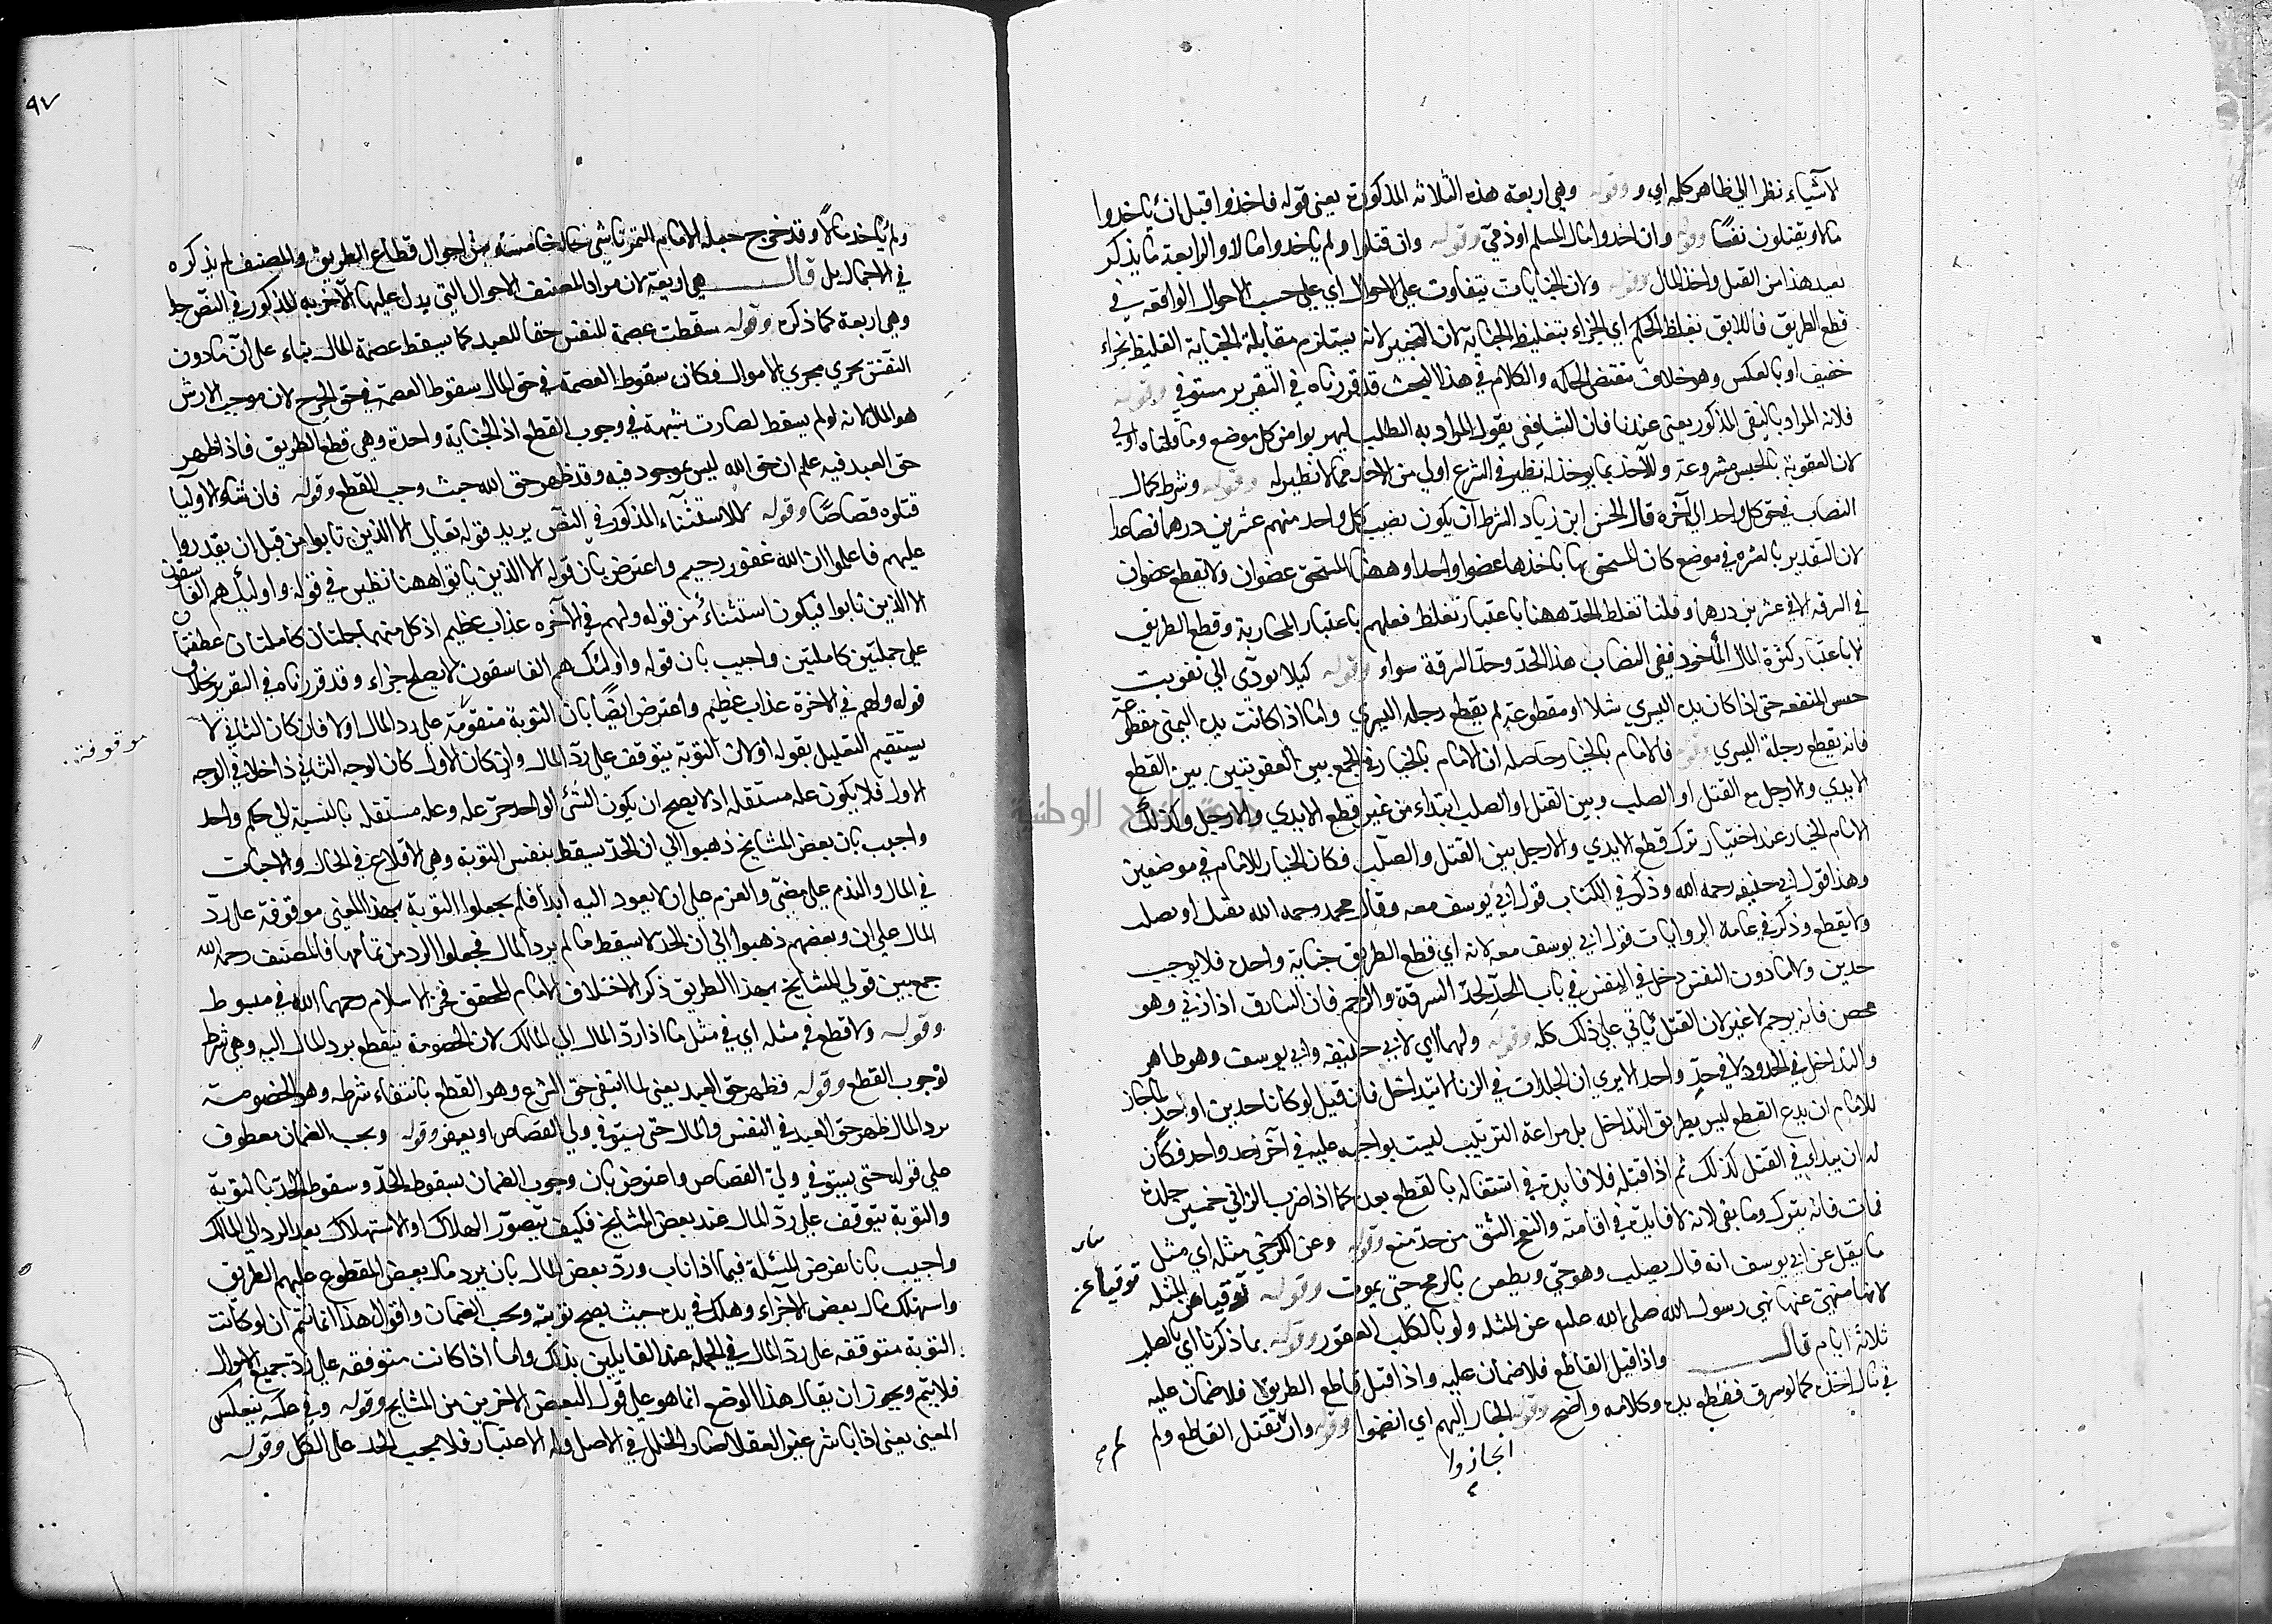 لاشياء نظرا الى ظاهر كلمه اي و وقوله وهي اربعة هذه الثلاثه المذكورة يعني قوله فاخذوا قبل ان ياخذوا
مالا ويقتلون نفسًا وقوله وان اخذوا مال المسلم او ذمي وقوله وان قتلوا ولم ياخذوا مالا والرابعة ما يذكر
بعد هذا من القتل واخذ المال وقوله ولان الجنايات يتفاوت على الاحوال اي على حسب الاحوال الواقعة في
قطع الطريق فاللايق تغلظ الحكم اي الجزاء بتغليظ الجناية لان التخيير لانه يستلزم مقابلة الجناية الغليظ بجزاء
خفيف او بالعكس وهو خلاف مقتضى الحكمه والكلام في هذا البحث قد قررناه في التقرير مستوفى وقوله
فلانه المراد بالنفي المذكور يعني عندنا فان الشافعي يقول المراد به الطلب ليهربوا من كل موضع وما قلناه اولى
لان العقوبة بالحبس مشروعة والاخذ بما يوجد له نظير في الشرع اولى من الاخذ مما لا نظير له وقوله وشرط كمال
النصاب في حق كل واحد الى آخره قال الحسن ابن زياد الشرط ان يكون نصيب كل واحد منهم عشرين درهما فصاعدا
لان التقدير بالعشره في موضع كان المستحق بها باخذها عضوا واحدا وههنا المستحق عضوان ولا يقطع عضوان
في السرقه الا في عشرين درهما وقلنا تغلظ الحد ههنا باعتبار تغلظ فعلهم باعتبار المحاربة وقطع الطريق
لا باعتبار كثرة المال المأخوذ ففي النصاب هذا الحد وحد السرقة سواء وقوله كيلا يودي الى تفويت
جنس المنفعه حتى اذا كان يده اليسري شلا او مقطوعة لم يقطع رجله اليسري واما اذا كانت يده اليمنى مقطوعة
فانه يقطع رجلة اليسري وقوله فالامام بالخيار حاصله ان الامام بالخيار في الجمع بين العقوبتين بين القطع
الايدي والارجل مع القتل او الصلب وبين القتل او الصلب ابتداء من غير قطع الايدي والارجل وكذلك
الامام الخيار عند اختيار ترك قطع الايدي والارجل بين القتل والصلب فكان الخيار للامام في موضعين
وهذا قول ابي حنيفه رحمه الله وذكر في الكتاب قول ابي يوسف معه وقال محمد رحمه الله يقتل او يصلب
ولا يقطع وذكر في عامة الروايات قول ابي يوسف معه لانه اي قطع الطريق جناية واحده فلا يوجب
حدين ولان مادون النفس دخل في النفس في باب الحد كحد السرقة والرجم فان السارق اذا زنى وهو
محصن فانه يرجم لا غير لان القتل ياتي على ذلك كله وقوله ولهما اي لابي حنيفه وابي يوسف وهو ظاهر
والتداخل في الحدود لا في حد واحد الا يري ان الجلدات في الزنا لا يتداخل فان قيل لو كانا حدين او احد لما جاز
للامام ان يدع القطع ليس بطريق التداخل بل مراعة الترتيب ليست بواجبه عليه في آخر حد واحد فكان
له ان يبداء في القتل كذلك ثم اذا قتله فلا فايدة في اشتغاله بالقطع بعده كما اذا ضرب الزاني خمسين جلدة
فمات فانه يترك وما بقي لانه لا فايدة في اقامته منع وقوله وعن الكرخي مثله اي مثل
ما ينقل عن ابي يوسف انه قال يصلب وهو حي ويطعن بالرمح حتى يموت وقوله توقيا عن المثله توقيا عن
لانها منهي عنها نهى رسول الله صلى الله عليه عن المثله ولو بالكلب العقور وقوله بما ذكرنا اي بالصلب
ثلاثة ايام قال واذا قتل القاطع فلا ضمان عليه واذا قتل قاطع الطريق فلا ضمان عليه
في مال اخذه كما لو سرق فقطع يده وكلامه واضح وقوله انحاز اليهم اي انضموا وقوله وان لم يقتل القاطع ولم
انحازوا
٩٧
ولم يأخذ مالًا وقد خرج حبله الامام التمرتاشي حاله خامسة من احوال قطاع الطريق والمصنف لم يذكره
في الاجمال بل قال هي اربعة لان مراد المصنف الاحوال التي يدل عليها الاخريه المذكور في النص
وهي اربعة كما ذكره وقوله سقطت عصمة للنفس حقا للعبد كما يسقط عصمة المال بناء على ان مادون
النفس يجري مجري الاموال فكان سقوط العصمة في حق المال سقوط العصمة في حق الجرح لان موجب الارش
هو المال لانه لو لم يسقط لصارت شبهة في وجوب القطع اذ الجناية واحدة وهي قطع الطريق فاذا ظهر
حق العبد فيه علم ان حق الله ليس بموجود فيه وقد ظهر حق الله حيث وجب القطع وقوله فان شاء الاوليا
قتلوه قصاصًا وقوله للاستثناء المذكور في النص يريد قوله تعالى الا الذين تابوا من قبل ان يقدروا
عليهم فاعلموا ان الله غفور رحيم واعترض بان قوله الا الذين تابوا ههنا نظير في قوله واوليك هم الفاسقون
الا الذين تابوا فيكون استثناء من قوله ولهم في الآخره عذاب عظيم اذ كل منهما جملتان كاملتان عطفتا
على جملتين كاملتين واجيب بان قوله واولئك هم الفاسقون لا يصلح جزاء وقد قررناه في التقرير بخلاف
قوله ولهم في الاخرة عذاب عظيم واعترض ايضًا بان التوبة على رد المال اولا فان كان الثاني لا
موقوفة
يستقيم التعليل بقوله اولان التوبة يتوقف على رد المال وان كان الاول كان الوجه الثاني داخلا في الوجه
الاول فلا يكون عله مستقله اذ لا يصح ان يكون الشئ الواحد جزء عله وعله مستقله بالنسبة الى حكم واحد
واجيب بان بعض المشايخ ذهبوا الى ان الحد يسقط بنفس التوبه وهي الاقلاع في الحال والاجتناب
في المال والندم على مضى والعزم على ان لا يعود اليه ابدا فلم يجعلوا التوبة بهذا المعنى موقوفة على رد
المال على ان وبعضهم ذهبوا الى ان الحد لا يسقط ما لم يرد المال فجعلوا الرد من تمامها فالمصنف رحمه الله
جمع بين قولي المشايخ بهذا الطريق ذكر الاختلاف الامام المحقق فخر الاسلام رحمهما الله في مبسوط
وقوله ولا قطع في مثله اي في مثل ما اذا رد المال الى المالك لان الخصومة ينقطع برد المال اليه وهي شرط
لوجوب القطع وقوله فظهر حق العبد يعني لما انتفى حق الشرع وهو القطع بانتفاء شرطه وهو الخصومة
برد المال ظهر حق العبد في النفس والمال حتى يستوفي ولي القصاص او يعفو وقوله ويجب الضمان معطوف
على قوله حتى يستوفي ولي القصاص واعترض بان وجوب الضمان بسقوط الحد وسقوط الحد بالتوبة
والتوبة يتوقف على رد المال عند بعض المشايخ فكيف يتصور الهلاك او الاستهلاك بعد الرد الى المالك
واجيب بانا نفرض المسئلة فيما اذا تاب ورد بعض المال بان يرد مال بعض المقطوع عليهم الطريق
واستهلك مال بعض الاخراء وهلك في يده حيث يصح توبته ويجب الضمان واقول هذا انما يتم ان لو كانت
التوبة متوقفه على رد المال في الجمله عند القايلين بذلك واما اذا كانت متوقفه على رد جميع الاموال
فلا يتم ويجوز ان يقال هذا الوضع انما هو على قول البعض الاخرين من المشايخ وقوله وفي عكسه ينعكس
المعنى يعني اذا باشر غير العقلا صار الخلل في الاصل وله الاعتبار فلا يجب الحد على الكل وقوله